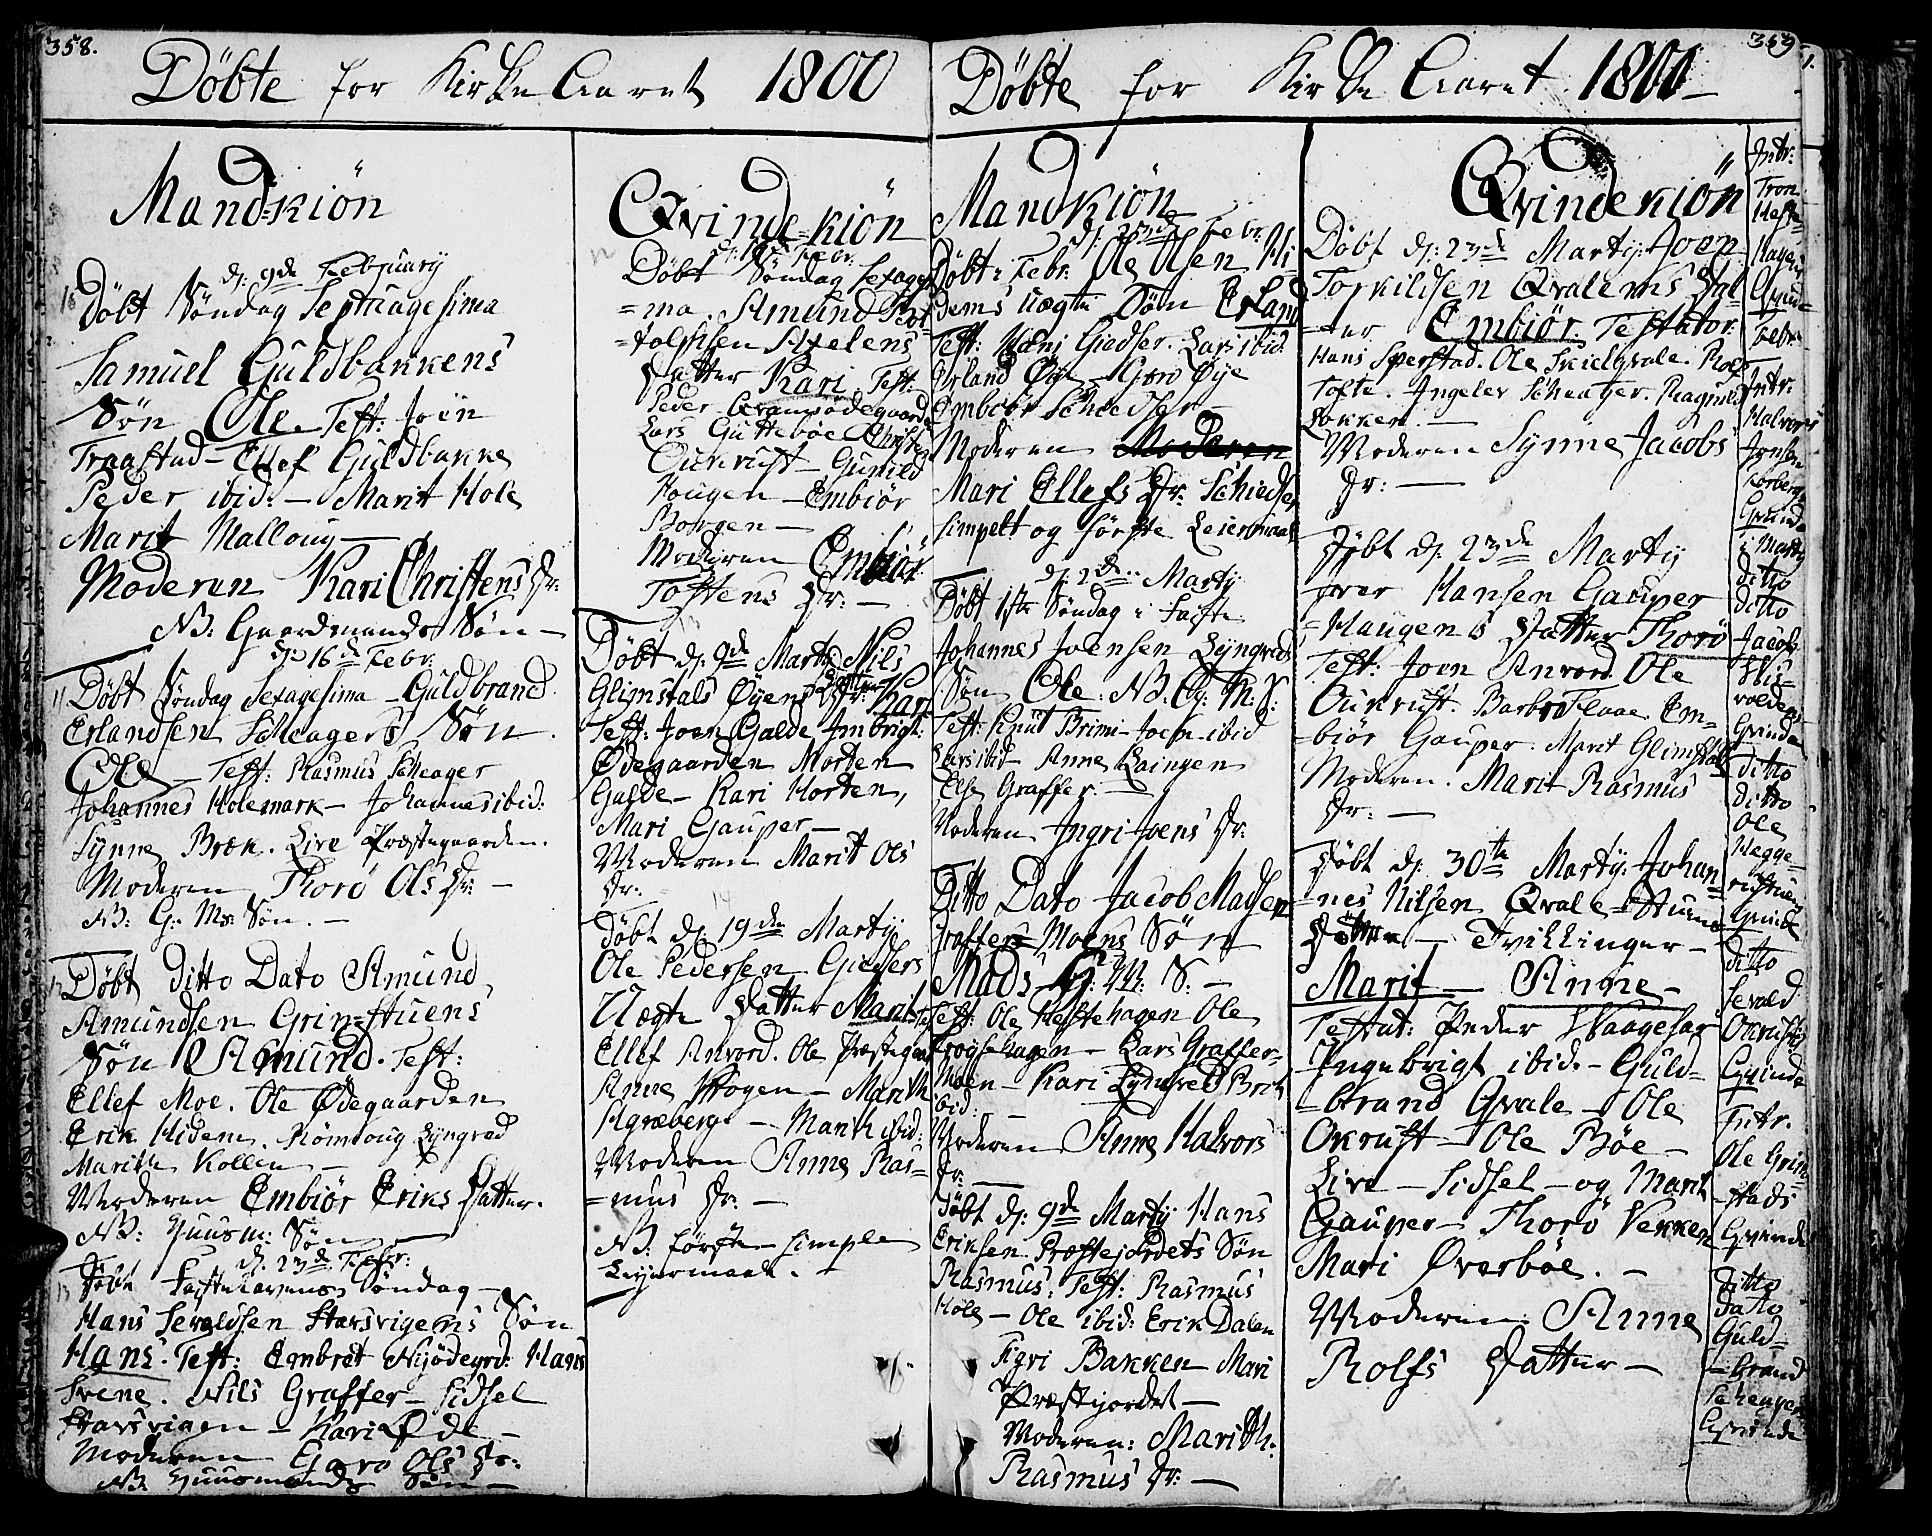 358.
Döbte for Kirke Aaret 1800
Mandkiön
d: 9de Februarij
Döbt Söndag Septuagesima
Samuel Guldbakkens
Sön Ole. Test: Joen
Traastad - Ellef Guldbakke
Peder ibid. - Marit Hole
Marit Malloug -
Moderen Kari Christens Dr:
NB: Gaardmands Sön -
D: 16de Febr:
11 Döbt Söndag Sexagesima - Guldbrand
Erlandsen Scheagers Sön.
Ole - Test: Rasmus Scheager
Johannes Holemark - Johannes ibid:
Synne Bræk. Live Præstegaarden.
Moderen Thorö Ols Dr: -
NB: G: Ms: Sön. -
Döbt Ditto Dato Amund
Amundsen Grin=stuens
Sön Amund. Test:
Ellef Moe. Ole Ödegaarden
Erik Hidem. Römoug Lyngved
Marithe Kollen -
Moderen Embiör Eriks Datter.
NB: Huusm: Sön -
d: 23de Febr:
13 Döbt Fastelavens Söndag -
Hans Sevaldsen Starsvigens Sön
Hans. Test: Embret Nyödegrd: Hans
Svene. Nils Graffer - Sidsel
Starsvigen - Kari Öde -
Moderen Gørø Ols Dr:
NB. Huusmands Sön -
Qvinde=kiön
d: 16de Febr:
Döbt Söndag Sexages
=ma. Amund Bot
=tolphsen Axelens
Datter Kari. Test:
Peder Gramsödegaarde
Lars Guttebøe Christi
Oukrust - Gunild
Hougen - Embiör
Borgen -
Moderen Embiör
Tostens Dr: -
Döbt d: 9de Martij Nils
Glimsdals Øyens Datter Kari
Test: Joen Galde Imbrigt
Ødegaarden Morten
Galde - Kari Horten,
Mari Gauper -
Moderen Marit Ols
Dr:
14
Döbt d: 19de Martij
Ole Pedersen Giedsers
Uægte Datter Marit Test
Ellef Anvord. Ole Præstegaard
Anne Skogen - Marith
Kræberg - Marith ibid:
Moderen Anne Ras=
=mus Dr: -
NB: förste - simple
Leyermaal.
359
Döbte for Kirke Aaret 1800
Mandkiön
d: 23de Febr:
Döbt: Febr: Ole Olsen Hi=
dems uægte Sön Erland
Test: Hans Giedser. Lars ibid.
Erland Øye - Gørø Øye
Embiör Schiedser -
Moderen Moderen
Mari Ellefs Dr: Schiedser
simpelt og förste Leiermaal
d: 2den Martij
Döbt 1ste Söndag i Faste
Johannes Joensen Lyngveds
Sön Ole. NB. G: M: S:
Test: Knut Brimi - Joen ibid
Lars ibid - Anne Kaingen
Else Graffer. -
Moderen Ingri Joens Dr:
Ditto Dato Jacob Madsen
Graffer=Moens Sön
Mads G: M: S: -
Test: Ole Hestehagen Ole
Frøysehagen - Lars Graffer=
Moen - Kari Lyngved Brit
ibid: -
Moderen Anne Halvors
Dr: -
Döbt d: 9de Martij Hans
Eriksen Præstejordets Sön
Rasmus. Test: Rasmus
Hole - Ole ibid: Erik Dalen
Sigri Bakken Mari
Præstjordet -
Moderen: Marith.
Rasmus Dr: -
Qvindekiön
Döbt d: 23de Martij: Joen
Torkildsen Qvalems Dat=
=ter Embiör. Testator:
Hans Sperstad. Ole Skielqvale. Rolf
Tofte. Ingeler Scheager. Ragnild
Løkken. -
Moderen Synne Jacobs
Dr: -
Döbt d: 23de Martij
Iver Hansen Gauper
=Haugens Datter Thorö
Test: Joen Anvord. Ole
Oukrust. Barbro Flaae. Em=
=biör Gauper. Marit Glimsdal
Moderen. Marit Rasmus
Dr: -
Döbt d: 30te Martij: Johan=
=nes Nilsen Qvale=Stuens
Döttre - Tvillinger -
Marit - Anne -
Testat: Peder Waagesar
Ingebrigt ibid. - Guld=
=brand Qvale - Ole
Okrust - Ole Böe -
Live - Sidsel - og Marit
Gauper - Thorö Vekken
Mari Øverböe. -
Moderen: Anne
Rolfs Datter -
Intr:
Tron
Heste=
Hagens
Qvin=
Febr:
Intr:
Halvors
Jensen
Korberg
Qvinde
i Martij
ditto
ditto
Jacob
voldens
Qvinde
ditto
ditto
Ole
Hegge=
Qvinde
ditto
Sevald
Okrusts
Qvinde
Intr.
Ole Grim=
=stads
Qvinde
Ditto
Dato
Guld=
=brand
Scheager
Qvinde